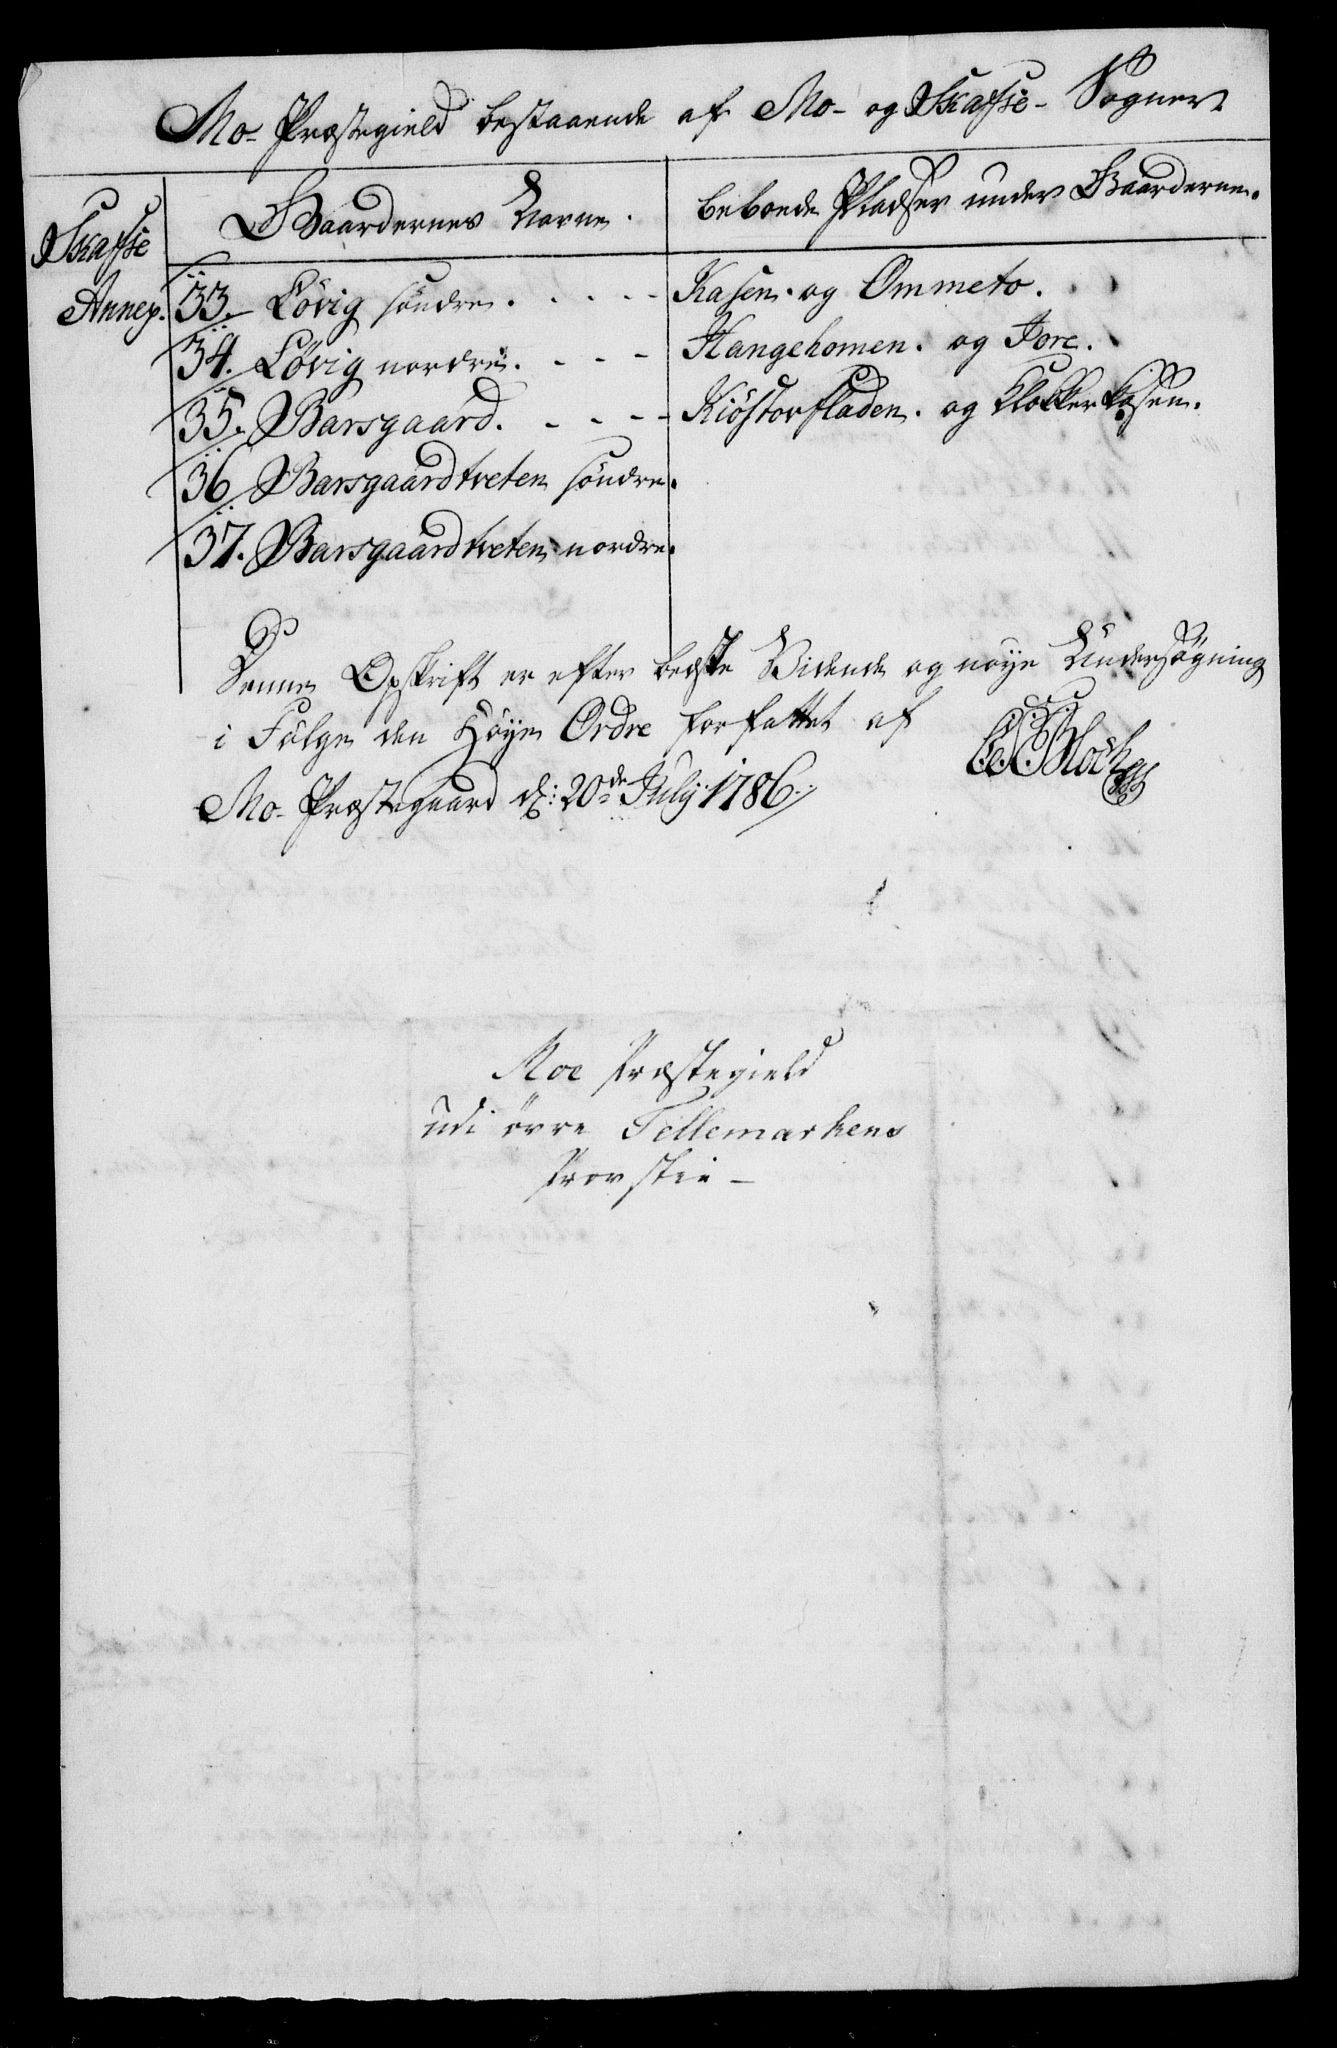 Mo- Præstegield bestaaende af Mo- og Skafse- Sogner
Gaardernes Navne. beboede Pladser under Gaarderne.
Skafse
Annex.
33. Lövig söndre. - - - - Kasen. og Ommeto.
34. Lövig nordre. - - - Hangehomen. og Fore.
35. Barsgaard. - - - - Kiöstovfladen. og Klokkerkosen.
36 Barsgaardtveten söndre.
37. Barsgaardtveten nordre.
Denne Opskrift er efter bedste Vidende og nöye Undersögning
i Fölge den Höye Ordre forfattet af
Mo- Præstegaard d: 20de July 1786.
Bloch
Moe Præstegield
udi övre Tellemarkens
Provstie -